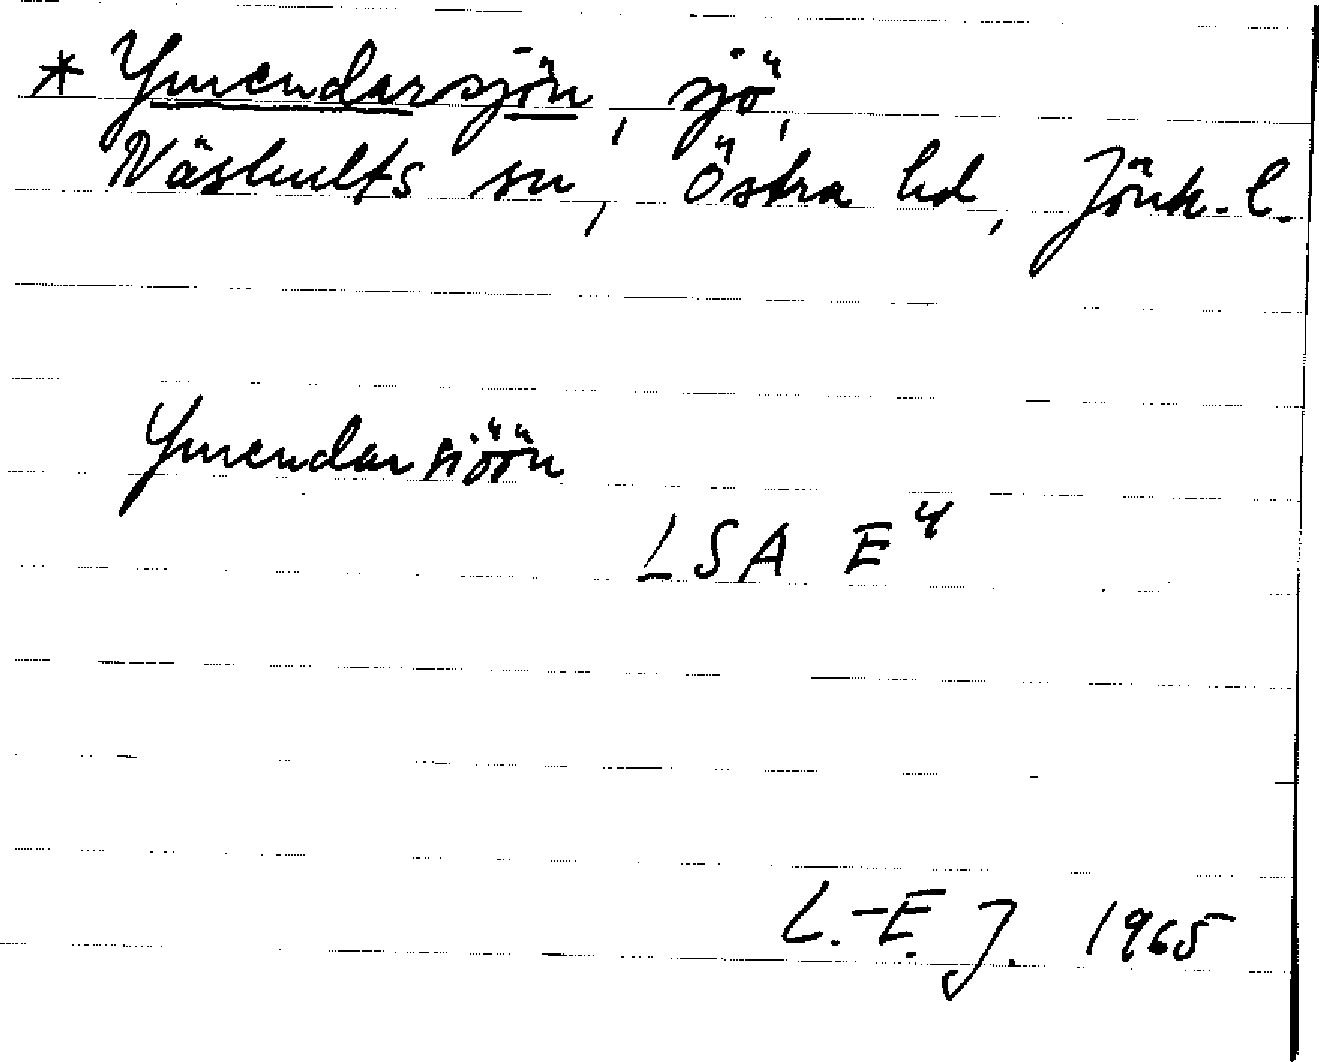 * Ymendarsjön, sjö,
Näshults sn, Östra hd, Jönk. l.
Ymendarsiöön
LSA E4
L.-E. J. 1965